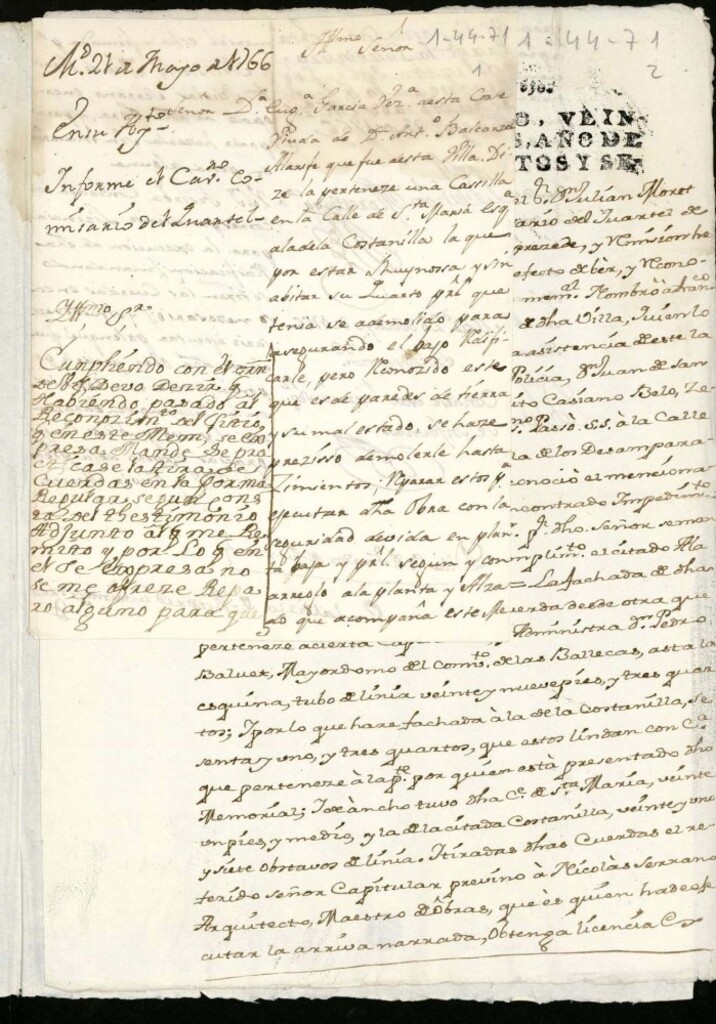 1-44-71
1-44-71
1
2
M.º 21 de Mayo de 1766
En su Ay.to
Informe el Cav.ro Co-
misario del Quartel-
Yllmo S.r
Cunpliendo con el
de V.S. Devo Dezir q
Habiendo pasado al
Reconozim.to del sitio,
q en este Mem.l se ex-
presa Mande se pra-
cticase la tira de
Cuerdas en la forma
Regular, segun cons-
ta del thestimonio
Adjunto al q me Re-
mito y, por Lo q en
el se empresa, no
se me ofreze Repa-
ro alguno para que
Yllmo Señor
Señor D.ª Eug.ª Garcia vez.ª de esta Corte
Viuda de D.n Ant.º Balcanze
Alarife que fue de esta Villa. Di-
ze la perteneze una Cassilla
en la Calle de S.ta Maria Esq.ª
a la de la Costanilla la que
por estar Ruynossa y sin
abitar su Quarto pral que
tenia se a demolido para
asegurando el bajo Reedifi-
carle, pero Reconozido este
que es de paredes de tierra
y su mal estado, se haze
prezisso demolerle hasta
Zimientos; Y para esto y
ejecutar dha Obra con la
seguridad devida en plan-
ta baja y pral. segun y con
arreglo a la planta y Alza-
do que acompaña este
O, VEIN
S, AÑO DE
TOS Y SE
D.n Julian Moret
ario del Quartel de
prezede, y Comision
efecto de ber, y Recono-
mem.l Nombrò à Fran.co
de dha Villa, Juien lo
a asistencia de este la
Policia, D.n Juan de San
ito Casiano Belo, Te-
Passò S.S. à la Calle
la de los Desampara-
conociò el menciona-
encontrado Impedim.to
p.r dho. Señor se man-
cumplim.to el citado Ala
= La fachada de dha
Cuerda desde otra que
Administra D.n Pedro
perteneze a cierta Cap
Baluet, Mayordomo del Comv.to de las Ballecas, asta la
esquina, tubo de linia veinte y nueve pies, y tres quar
tos; I por lo que hare fachada à la de la Costanilla, se
senta y uno, y tres quartos, que estos lindan con C.ª
que perteneze à la p.te por quien està presentado dho
Memorial; I de àncho tuvo dha C.e de S.ta Maria, veinte
un pies, y medio, y la de la citada Costanilla, veinte y uno
y siete obstavos de linia. I tiradas dhas Cuerdas el re-
ferido señor Capitular previno à Nicolàs Serrano
Arquitecto, Maestro de Obras, que ès quien ha de eje
cutar la arriva narrada, Obtenga licencia